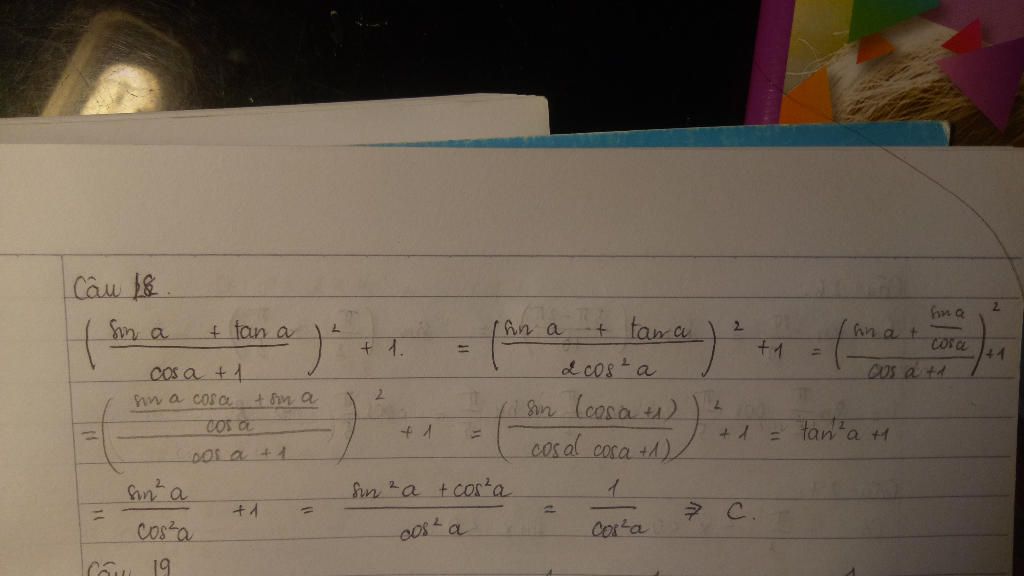 Câu 18.
( (sin a + tan a) / (cos a + 1) )² + 1. = ( (sin a + tan a) / (2cos² a) )² + 1 = ( (sin a + sin a / cos a) / (cos a + 1) )² + 1
= ( ((sin a cos a + sin a) / cos a) / (cos a + 1) )² + 1 = ( sin (cos a + 1) / cos a( cos a + 1) )² + 1 = tan² a + 1
= sin² a / cos² a + 1 = (sin² a + cos² a) / cos² a = 1 / cos² a ⇒ C.
Câu 19